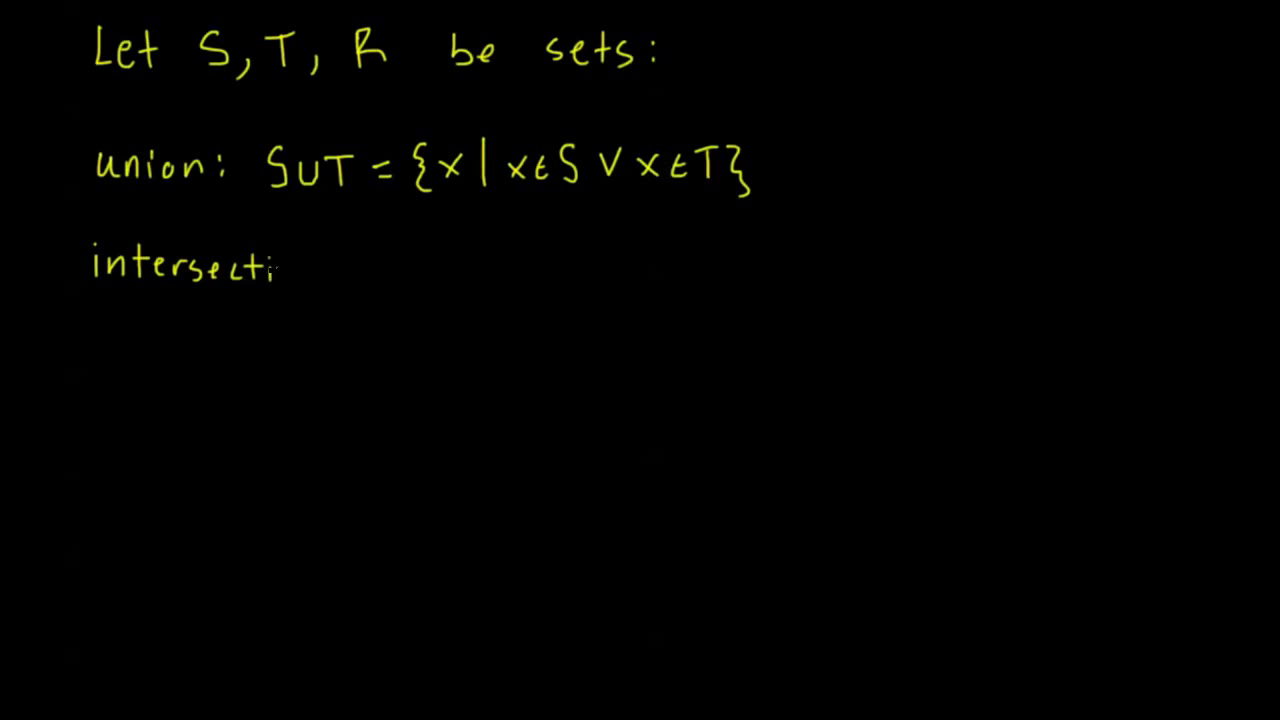 Let S, T, R be sets:
union: S∪T = {x | x∈S ∨ x∈T}
intersecti